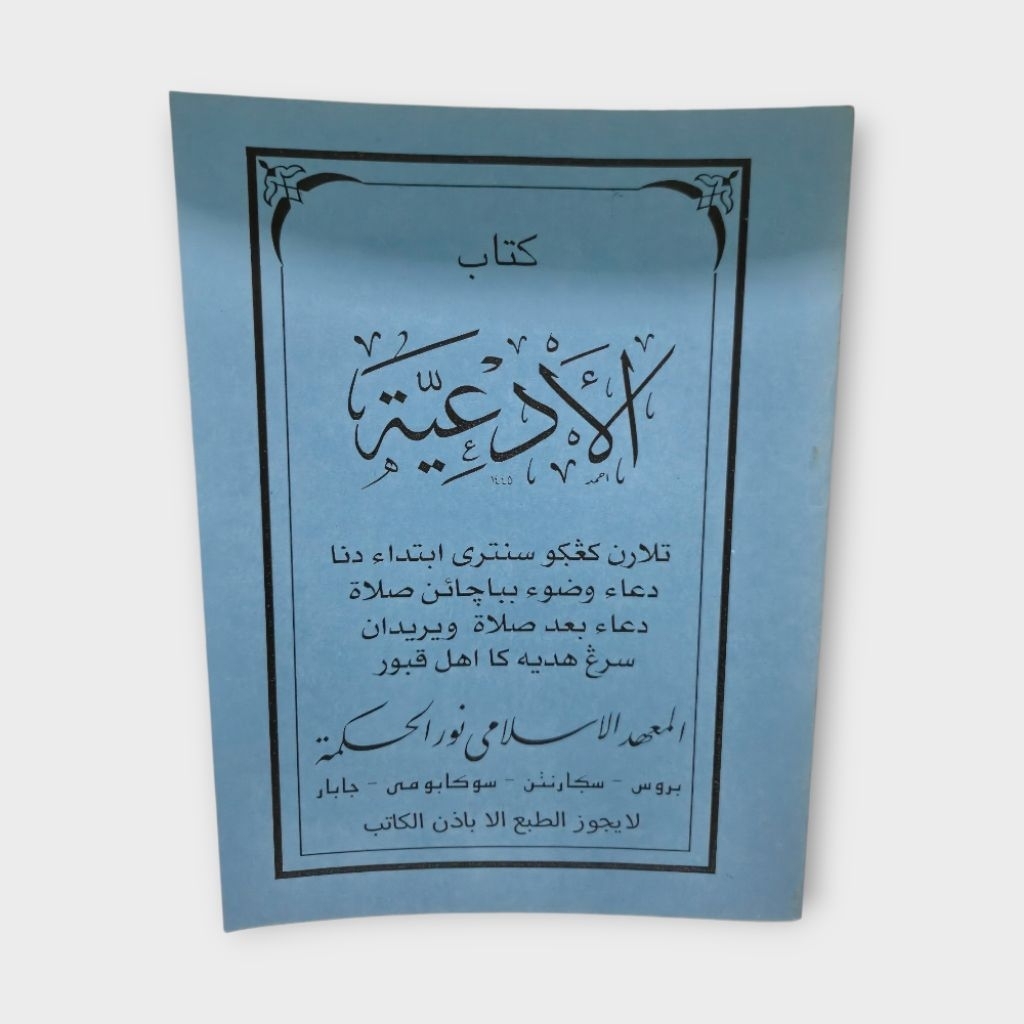 كتاب
الأَدْعِيَّة
احمد ١٤٤٥
تلارن كڠݢو سنتري ابتداء دنا
دعاء وضوء بباچائن صلاة
دعاء بعد صلاة ويريدان
سرڠ هديه كا اهل قبور
المعهد الاسلامي نور الحكمة
بروس - سݢارنتن - سوكابومي - جابار
لايجوز الطبع الا باذن الكاتب